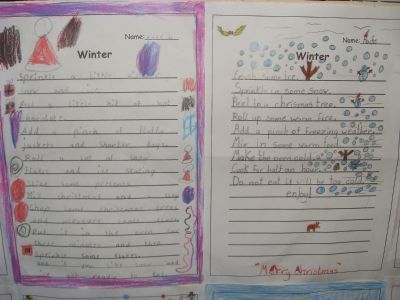 Name:
Winter
Sprinkle a little
snow and ice.
Put a little bit of hot
chocolate.
Add a pinch of fluffy
jackets and
Roll some snow
flakes and ice skating
Slice some presents.
Mix christmas and
Chop some christmas trees
and
Put it in the oven for
three minutes and then
Sprinkle some
and
Name:
Winter
Crush some ice.
Sprinkle in some snow.
Peel in a chrismas tree.
Roll up some warm fire.
Add a pinch of freezing weather.
Mix in some warm food.
Make the oven cold.
Cook for half an hour.
Do not eat it will be too cold
enjoy!
"Merry christmas"